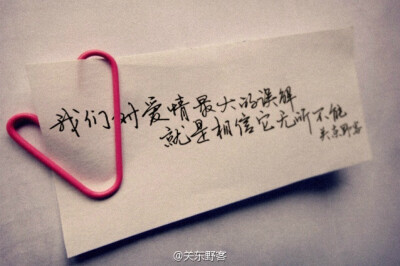 我们对爱情最大的误解
就是相信它无所不能
关东野客
@关东野客